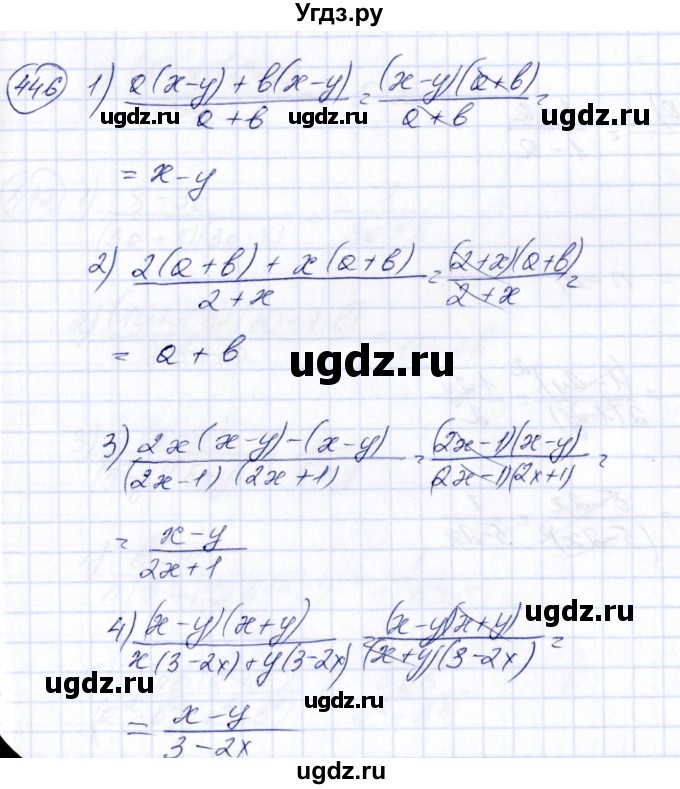 Угдз.ру
446 1) a(x-y) + b(x-y) / a + b = (x-y)(a+b) / a + b =
ugdz.ru ugdz.ru ugdz.ru
= x-y
2) 2(a+b) + x(a+b) / 2+x = (2+x)(a+b) / 2+x =
= a + b
ugdz.ru ugdz.ru
3) 2x(x-y)-(x-y) / (2x-1)(2x+1) = (2x-1)(x-y) / (2x-1)(2x+1) =
= x-y / 2x+1
4) (x-y)(x+y) / x(3-2x)+y(3-2x) = (x-y)(x+y) / (x+y)(3-2x) =
ugdz.ru ugdz.ru
= x-y / 3-2x
ugdz.ru
ugdz.ru